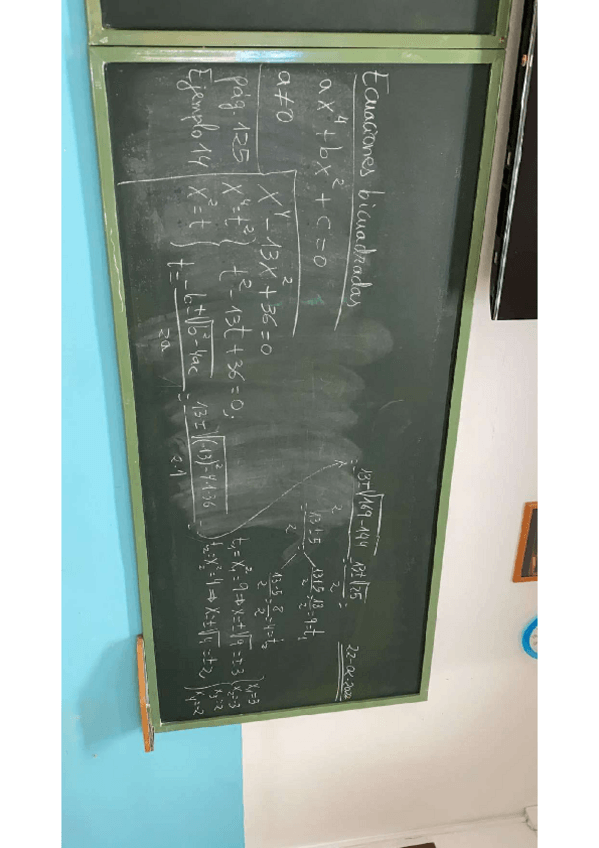 Ecuaciones bicuadradas
ax⁴+bx²+c=0
a≠0
pág. 125
Ejemplo 14
x⁴-13x²+36=0
x⁴=t² } t²-13t+36=0;
x²=t
t= -b±√b²-4ac / 2a = 13±√(-13)²-4·1·36 / 2·1 =
22-04-2022
= 13±√169-144 / 2 = 13±√25 / 2 =
= 13±5 / 2 =
13+5 / 2 = 18 / 2 = 9=t₁
13-5 / 2 = 8 / 2 = 4=t₂
t₁=x²=9⇒x=±√9=±3 { x₁=3
x₂=-3
t₂=x²=4⇒x=±√4=±2 { x₃=2
x₄=-2